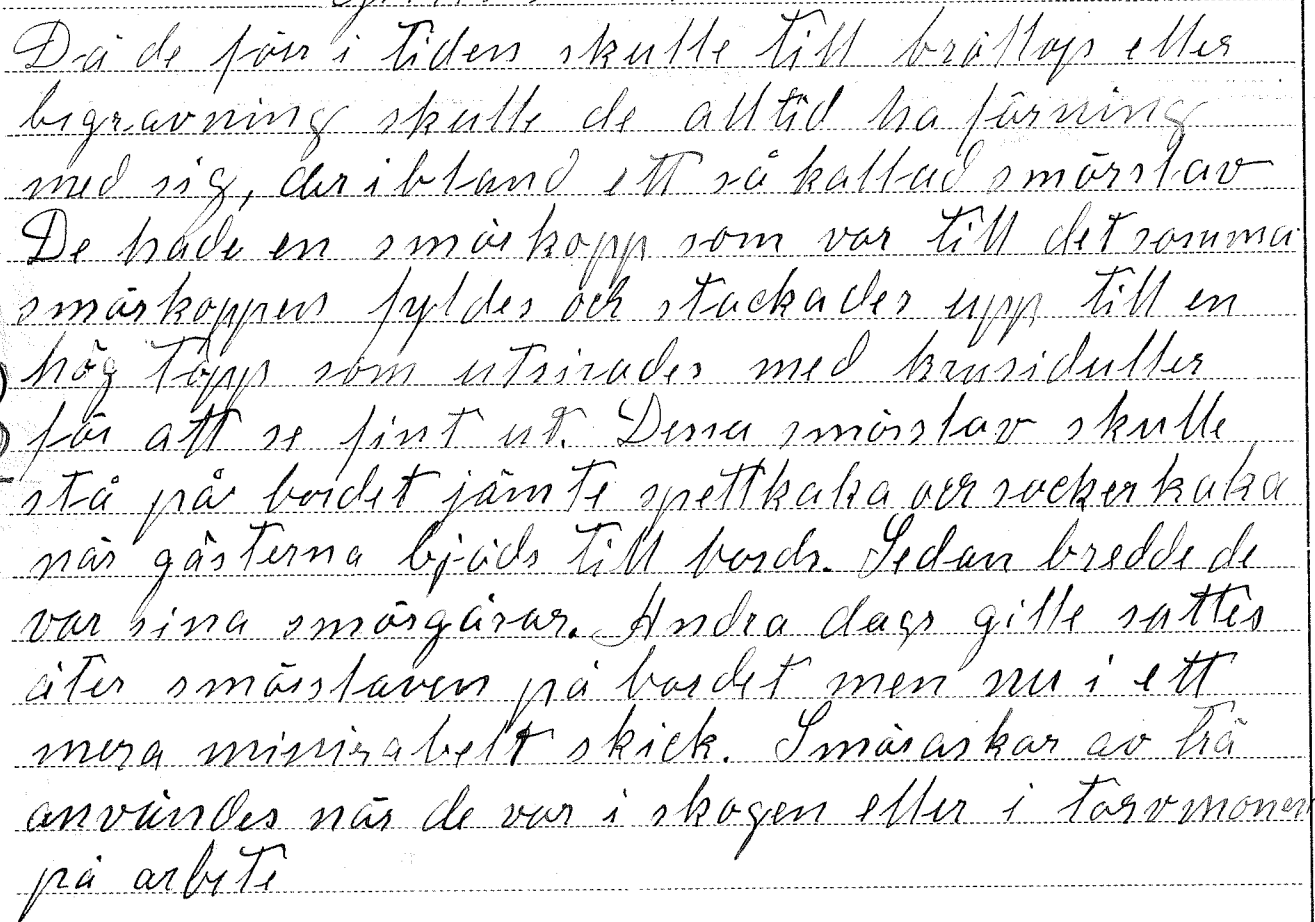 Då de förr i tiden skulle till bröllop eller
begravning skulle de alltid ha förning
med sig, deribland ett så kallad smörstav
De hade en smörkopp som var till det samma
smörkoppen fyldes och stackades upp till en
hög topp som utsirades med krusiduller
för att se fint ut. Denna smörstav skulle
stå på bordet jämte spettkaka och sockerkaka
när gästerna bjöds till bords. Sedan bredde de
var sina smörgåsar. Andra dags gille sattes
åter smörstaven på bordet men nu i ett
mera miserabelt skick. Smöraskar av trä
användes när de var i skogen eller i torvmonen
på arbete